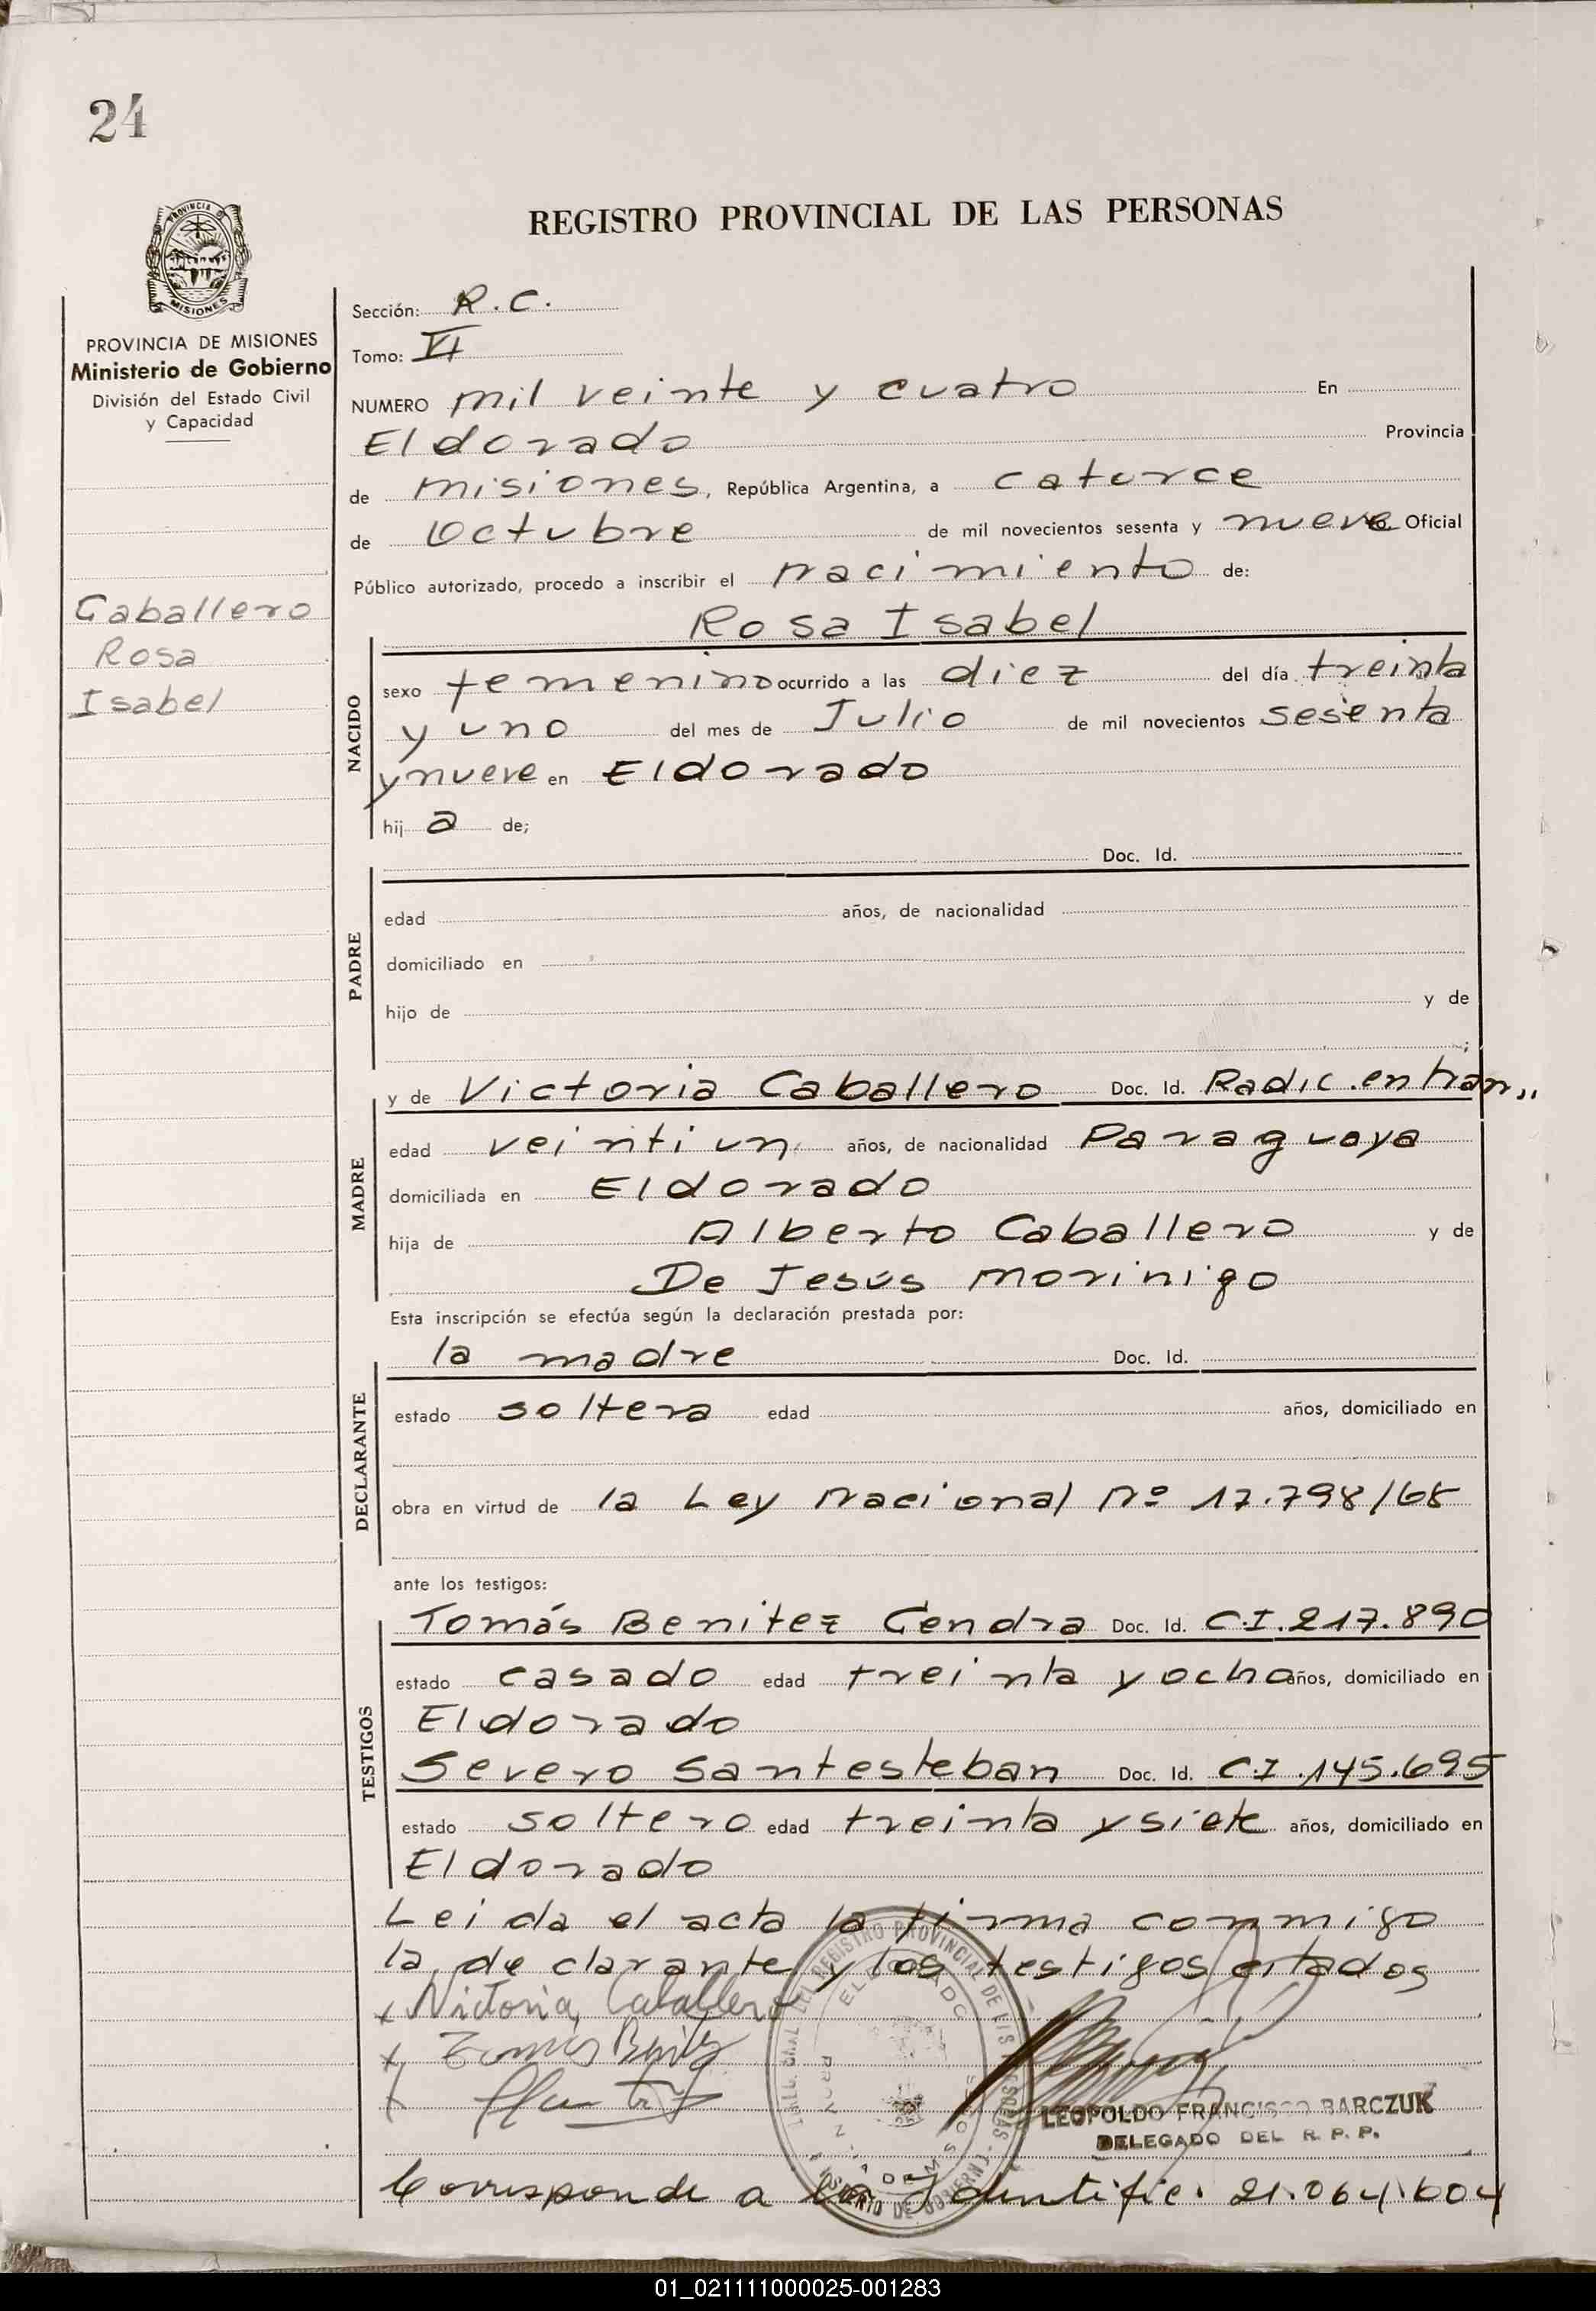 24
REGISTRO PROVINCIAL DE LAS PERSONAS
PROVINCIA
MISIONES
PROVINCIA DE MISIONES
Ministerio de Gobierno
División del Estado Civil
y Capacidad
Caballero
Rosa
Isabel
Sección: R.C.
Tomo: VI
NUMERO mil veinte y cuatro En
Eldorado Provincia
de misiones, República Argentina, a catorce
de Octubre de mil novecientos sesenta y nueve Oficial
Público autorizado, procedo a inscribir el nacimiento de:
Rosa Isabel
NACIDO
sexo femenino ocurrido a las diez del día treinta
y uno del mes de Julio de mil novecientos sesenta
y nueve en Eldorado
hij a de;
Doc. Id.
PADRE
edad años, de nacionalidad
domiciliado en
hijo de y de
;
MADRE
y de Victoria Caballero Doc. Id. Radic. en tram,,
edad veintiun años, de nacionalidad Paraguaya
domiciliada en Eldorado
hija de Alberto Caballero y de
De Jesús Morinigo
Esta inscripción se efectúa según la declaración prestada por:
DECLARANTE
la madre Doc. Id.
estado soltera edad años, domiciliado en
obra en virtud de la Ley Nacional Nº 17.798/68
ante los testigos:
TESTIGOS
Tomás Benitez Cendra Doc. Id. C.I. 217.890
estado casado edad treinta y ocho años, domiciliado en
Eldorado
Severo Santesteban Doc. Id. C.I. 145.695
estado soltero edad treinta y siete años, domiciliado en
Eldorado
Leida el acta la firma conmigo
la declarante y los testigos citados
x Victoria Caballero
x Tomás
x
REGISTRO PROVINCIAL DE LAS PERSONAS
ELDORADO
LEOPOLDO FRANCISCO BARCZUK
DELEGADO DEL R. P. P.
Corresponde a la Identific. 21.064.604
01_021111000025-001283